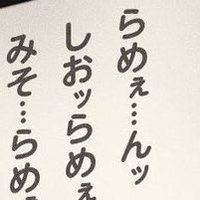 らめぇ…んッ
しおッらめぇ
みそ…らめぇ